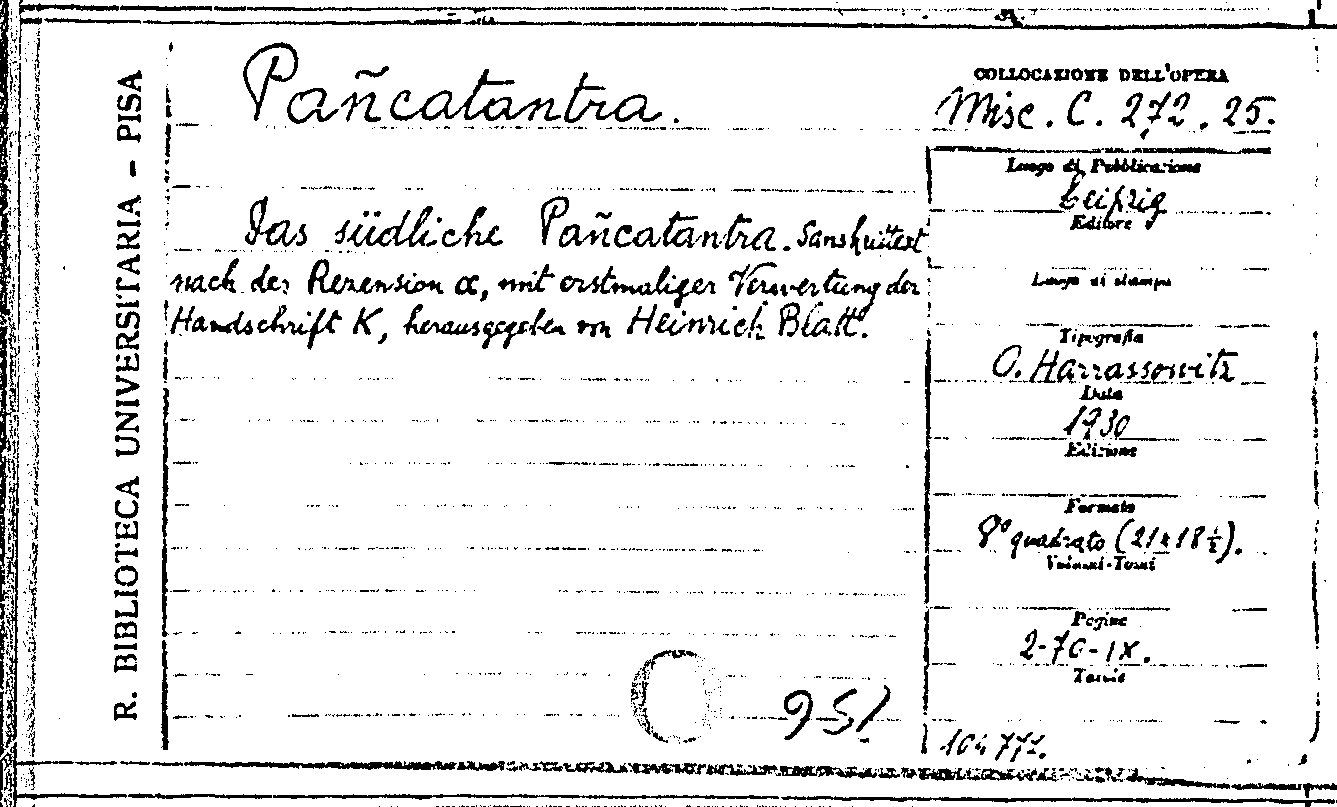 R. BIBLIOTECA UNIVERSITARIA - PISA
Pañcatantra.
Das südliche Pañcatantra. Sanskrittext
nach der Rezension α, mit erstmaliger Verwertung der
Handschrift K, herausgegeben von Heinrich Blatt.
951
COLLOCAZIONE DELL'OPERA
Misc. C. 272. 25.
Luogo di Pubblicazione
Leipzig
Editore
Luogo di stampa
Tipografia
O. Harrassowitz
Data
1930
Edizione
Formato
8° quadrato (21x18½).
Volumi-Tomi
Pagine
2-70-IX.
Tavole